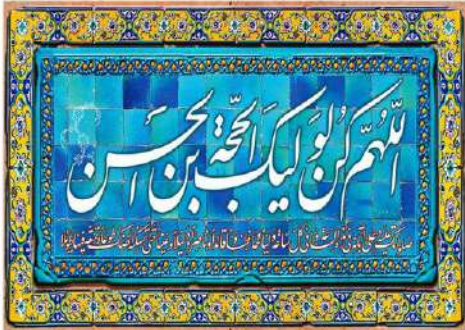 اللّهُمَّ كُن لِوَلیِّکَ الحُجَّةِ بنِ الحَسَن
صلواتک علیه و علی آبائه فی هذه الساعة و فی کل ساعة ولیا و حافظا و قائدا و ناصرا و دلیلا و عینا حتی تسکنه ارضک طوعا و تمتعه فیها طویلا